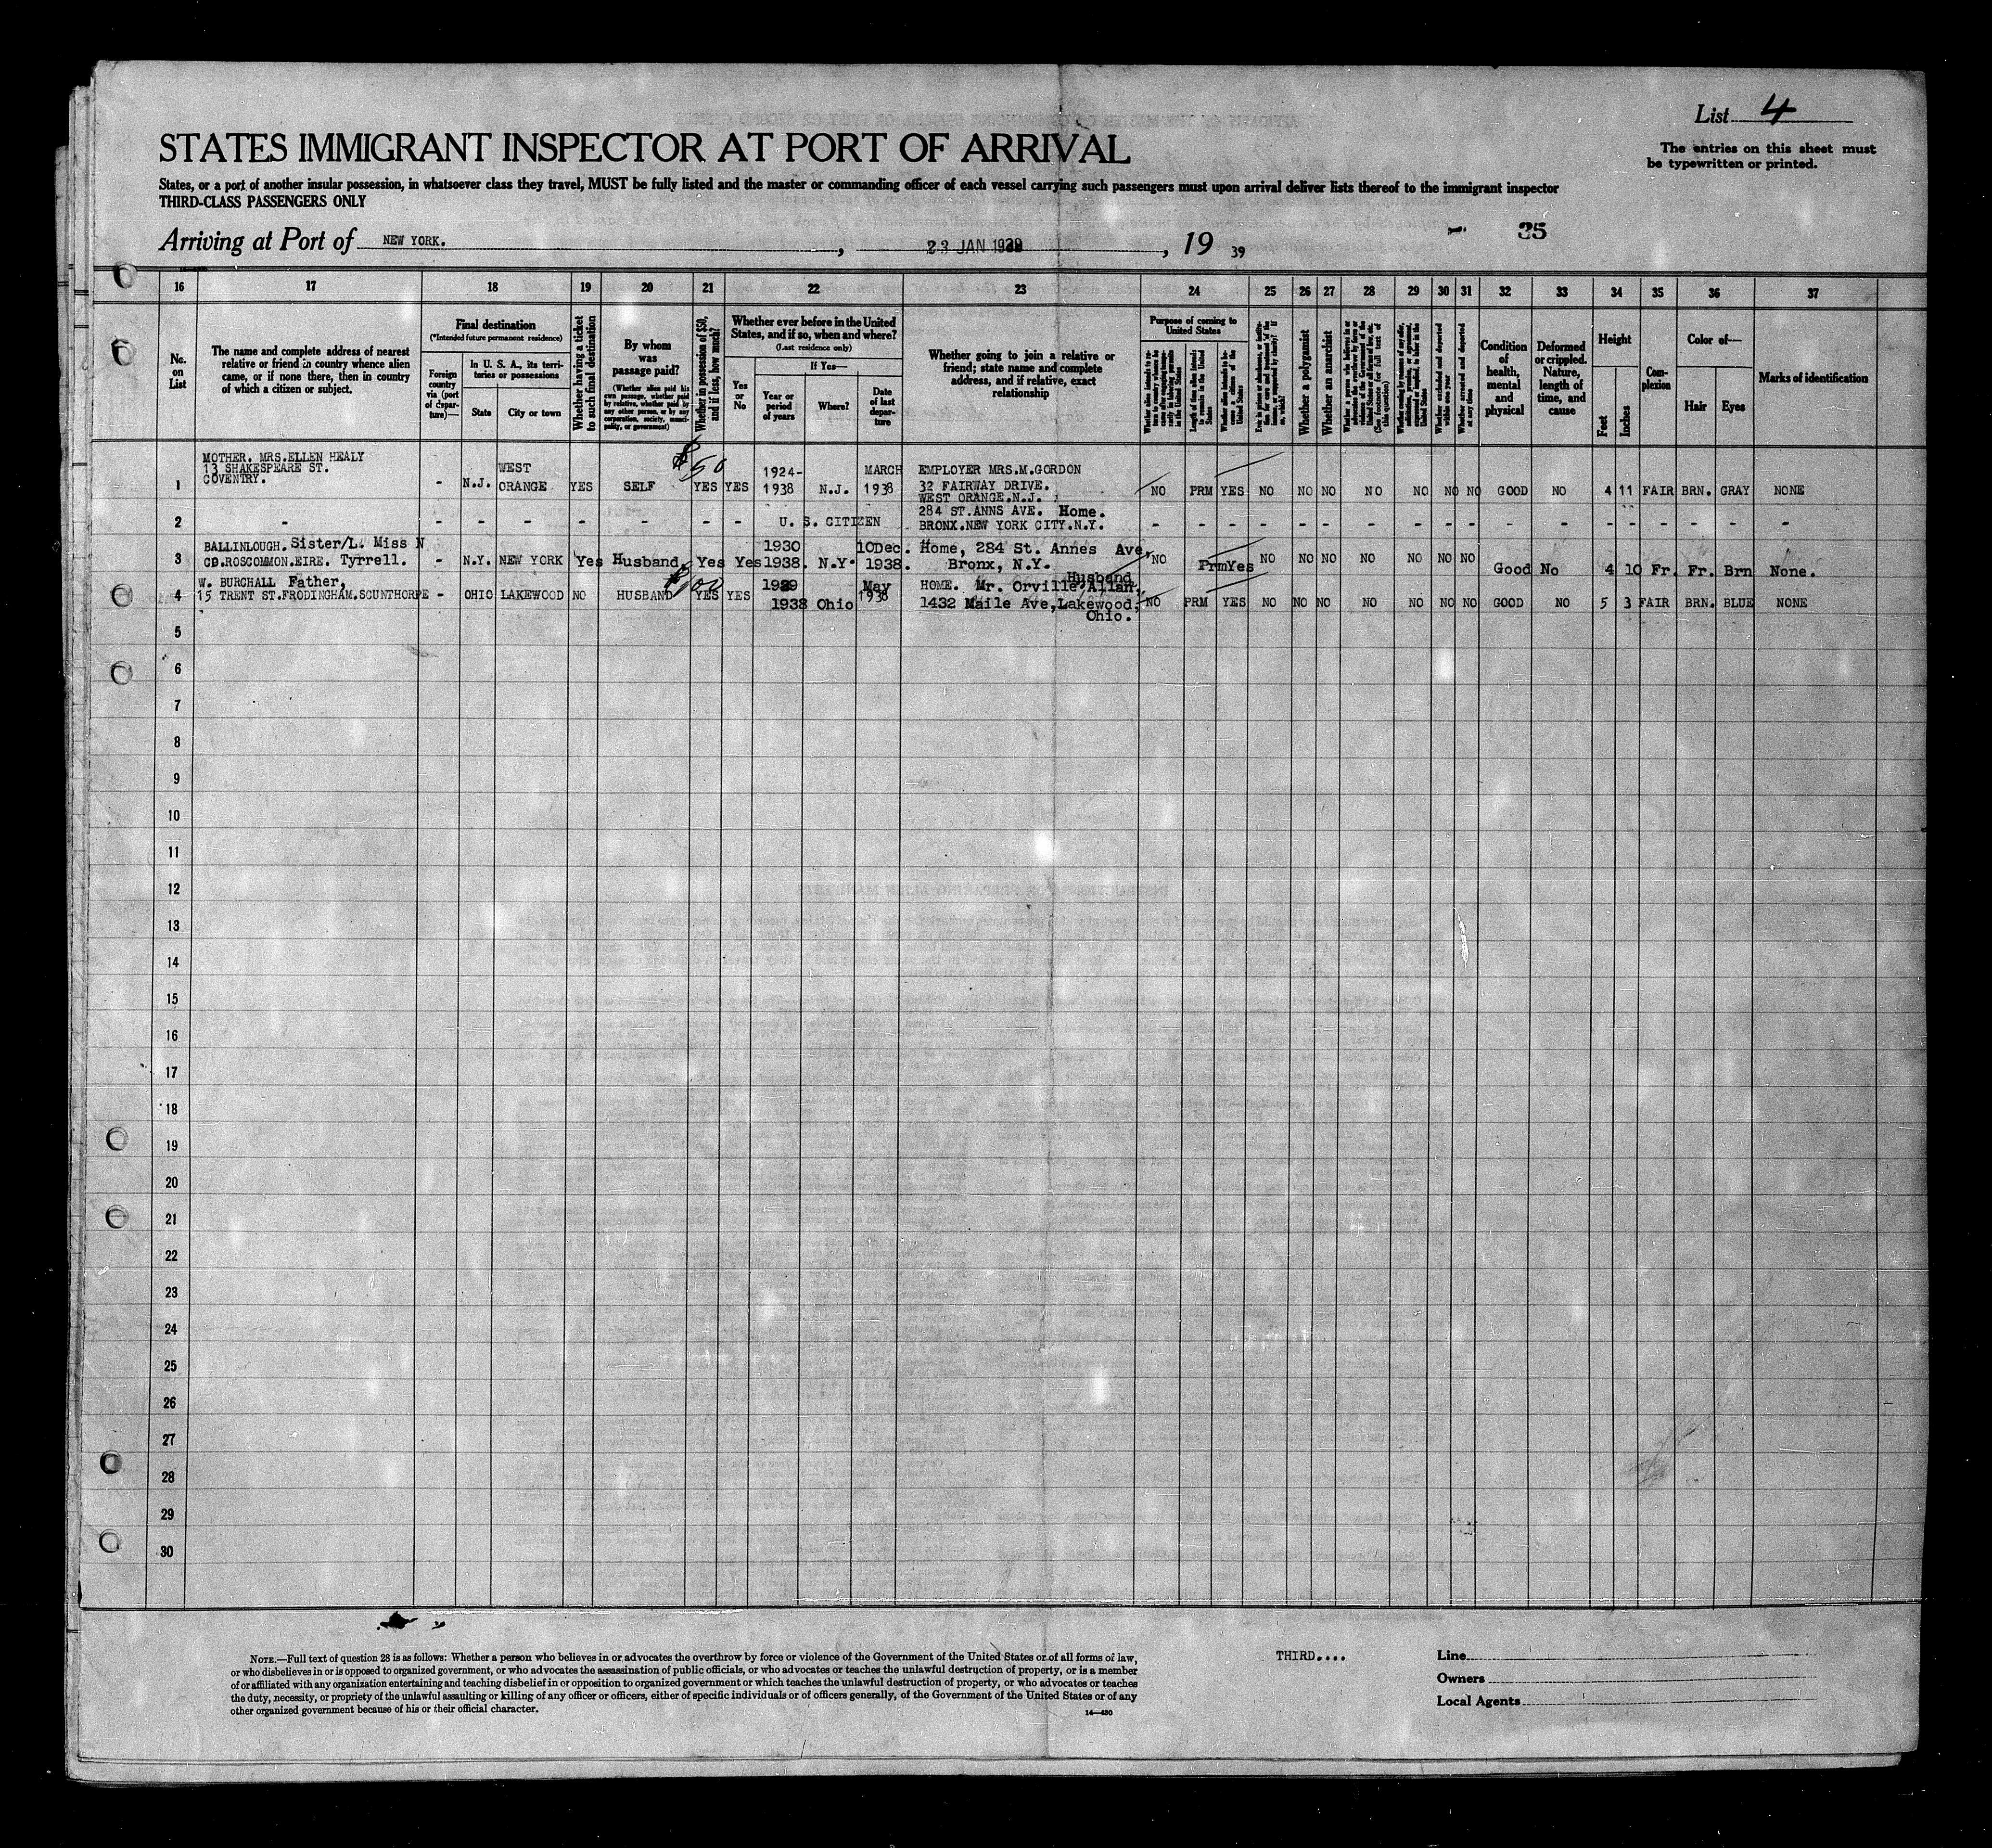 List 4
The entries on this sheet must
be typewritten or printed.
STATES IMMIGRANT INSPECTOR AT PORT OF ARRIVAL
States, or a port of another insular possession, in whatsoever class they travel, MUST be fully listed and the master or commanding officer of each vessel carrying such passengers must upon arrival deliver lists thereof to the immigrant inspector
THIRD-CLASS PASSENGERS ONLY
35
Arriving at Port of NEW YORK. , 23 JAN 1939 , 19 39
16 17 18 19 20 21 22 23 24 25 26 27 28 29 30 31 32 33 34 35 36 37
No. on List
The name and complete address of nearest
relative or friend in country whence alien
came, or if none there, then in country
of which a citizen or subject.
Final destination
(*Intended future permanent residence)
Foreign country via (port of departure)—
In U. S. A., its territories or possessions
State
City or town
Whether having a ticket to such final destination
By whom was passage paid?
(Whether alien paid his own passage, whether paid by relative, whether paid by any other person, or by any corporation, society, municipality, or government)
Whether in possession of $50, and if less, how much?
Whether ever before in the United
States, and if so, when and where?
(Last residence only)
Yes or No
If Yes—
Year or period of years
Where?
Date of last departure
Whether going to join a relative or
friend; state name and complete
address, and if relative, exact
relationship
Purpose of coming to
United States
Length of time alien intends to remain in the United States
Whether a polygamist
Whether an anarchist
Whether arrested and deported at any time
Condition of health, mental and physical
Deformed or crippled. Nature, length of time, and cause
Height
Feet
Inches
Complexion
Color of—
Hair
Eyes
Marks of identification
MOTHER. MRS.ELLEN HEALY
13 SHAKESPEARE ST.
COVENTRY.
1 - N.J. WEST ORANGE YES SELF $50 YES YES 1924-1938 N.J. MARCH 1938
EMPLOYER MRS.M.GORDON
32 FAIRWAY DRIVE.
WEST ORANGE.N.J.
NO PRM YES NO NO NO NO NO NO NO GOOD NO 4 11 FAIR BRN. GRAY NONE
2 - - - - - - - - U. S. CITIZEN
284 ST.ANNS AVE. Home.
BRONX.NEW YORK CITY.N.Y.
- - - - - - - - - - - - - - - - - -
BALLINLOUGH. Sister/L. Miss N
3 CO.ROSCOMMON.EIRE. Tyrrell. - N.Y. NEW YORK Yes Husband. Yes Yes 1930 1938. N.Y. 10Dec. 1938.
Home, 284 St. Annes Ave,
Bronx, N.Y.
NO Prm Yes NO NO NO NO NO NO NO Good No 4 10 Fr. Fr. Brn None.
W. BURCHALL Father,
4 15 TRENT ST.FRODINGHAM.SCUNTHORPE - OHIO LAKEWOOD NO HUSBAND YES YES 1938 Ohio May 1938
Husband
HOME. Mr. Orville Allan,
1432 Maile Ave,Lakewood,
Ohio.
NO PRM YES NO NO NO NO NO NO NO GOOD NO 5 3 FAIR BRN. BLUE NONE
5
6
7
8
9
10
11
12
13
14
15
16
17
18
19
20
21
22
23
24
25
26
27
28
29
30
NOTE.—Full text of question 28 is as follows: Whether a person who believes in or advocates the overthrow by force or violence of the Government of the United States or of all forms of law,
or who disbelieves in or is opposed to organized government, or who advocates the assassination of public officials, or who advocates or teaches the unlawful destruction of property, or is a member
of or affiliated with any organization entertaining and teaching disbelief in or opposition to organized government or which teaches the unlawful destruction of property, or who advocates or teaches
the duty, necessity, or propriety of the unlawful assaulting or killing of any officer or officers, either of specific individuals or of officers generally, of the Government of the United States or of any
other organized government because of his or their official character.
14—430
THIRD....
Line
Owners
Local Agents